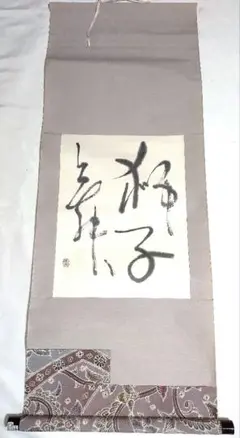 獅子
舞